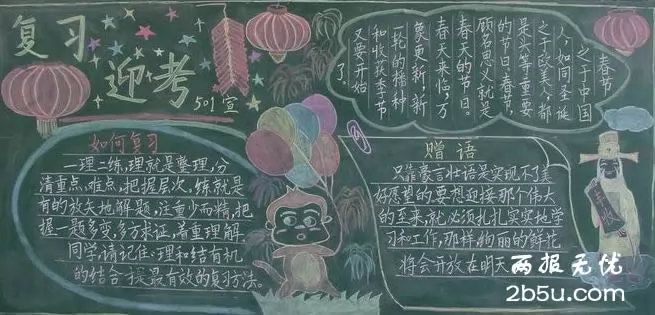 复习
迎考
501宣
春节
之于中国
人,如同圣诞
之于欧美人,都
是头等重要
的节日。春节,
顾名思义就是
春天的节日。
春天来临,万
象更新,新
一轮的播种
和收获季节
又要开始
了。
如何复习
一理二练,理就是整理,分
清重点、难点,把握层次。练就是
有的放矢地解题,注重少而精,把
握一题多变,多方求证,着重理解。
同学请记住:理和结有机
的结合一提最有效的复习方法。
赠语
只靠豪言壮语是实现不了美
好愿望的,要想迎接那个伟大
的至来,就必须扎扎实实地学
习和工作,那样绚丽的鲜花
将会开放在明天
两报无忧
2b5u.com